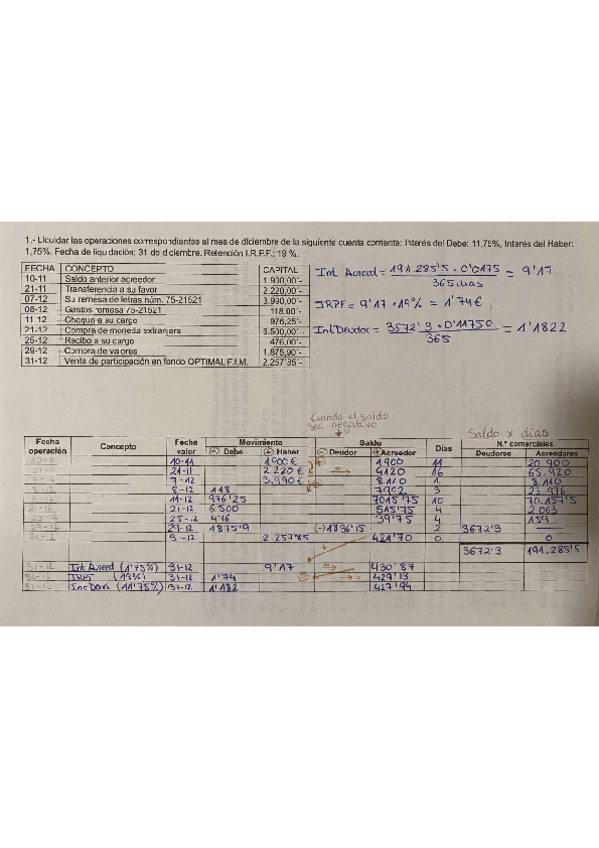 1.- Liquidar las operaciones correspondientes al mes de diciembre de la siguiente cuenta corriente: Interés del Debe: 11,75%, Interés del Haber:
1,75%. Fecha de liquidación: 31 de diciembre. Retención I.R.P.F.: 19 %.
FECHA CONCEPTO CAPITAL
10-11 Saldo anterior acreedor 1.900,00'-
21-11 Transferencia a su favor 2.220,00'-
07-12 Su remesa de letras núm. 75-21521 3.990,00'-
08-12 Gastos remesa 75-21521 118,00'-
11-12 Cheque a su cargo 976,25'-
21-12 Compra de moneda extranjera 6.500,00'-
25-12 Recibo a su cargo 476,00'-
29-12 Compra de valores 1.875,90'-
31-12 Venta de participación en fondo OPTIMAL F.I.M. 2.257,85'-
Int Acreed = 191.285'5 · 0'0175 / 365 días = 9'17
IRPF = 9'17 · 19% = 1'74€
Int Deudor = 3672'3 · 0'11750 / 365 = 1'1822
Cuando el saldo
sea negativo
Saldo x días
Fecha operación Concepto Fecha valor Movimiento Saldo Días N.º comerciales
(-) Debe (+) Haber (-) Deudor (+) Acreedor Deudorse Acreedores
10-11 1900€ 1900 11 20.900
21-11 2.220€ = 4120 16 65.920
7-12 3.990€ 8.110 1 8.110
8-12 118 7992 3 23.976
11-12 976'25 7015'75 10 70.157'5
21-12 6.500 515'75 4 2.063
25-12 476 39'75 4 159
29-12 1875'9 (-)1836'15 2 3672'3
31-12 2.257'85 421'70 0 0
3672'3 191.285'5
31-12 Int Acreed (1'75%) 31-12 9'17 = 430'87
31-12 IRPF (19%) 31-12 1'74 429'13
31-12 Int Deud (11'75%) 31-12 1'182 427'94